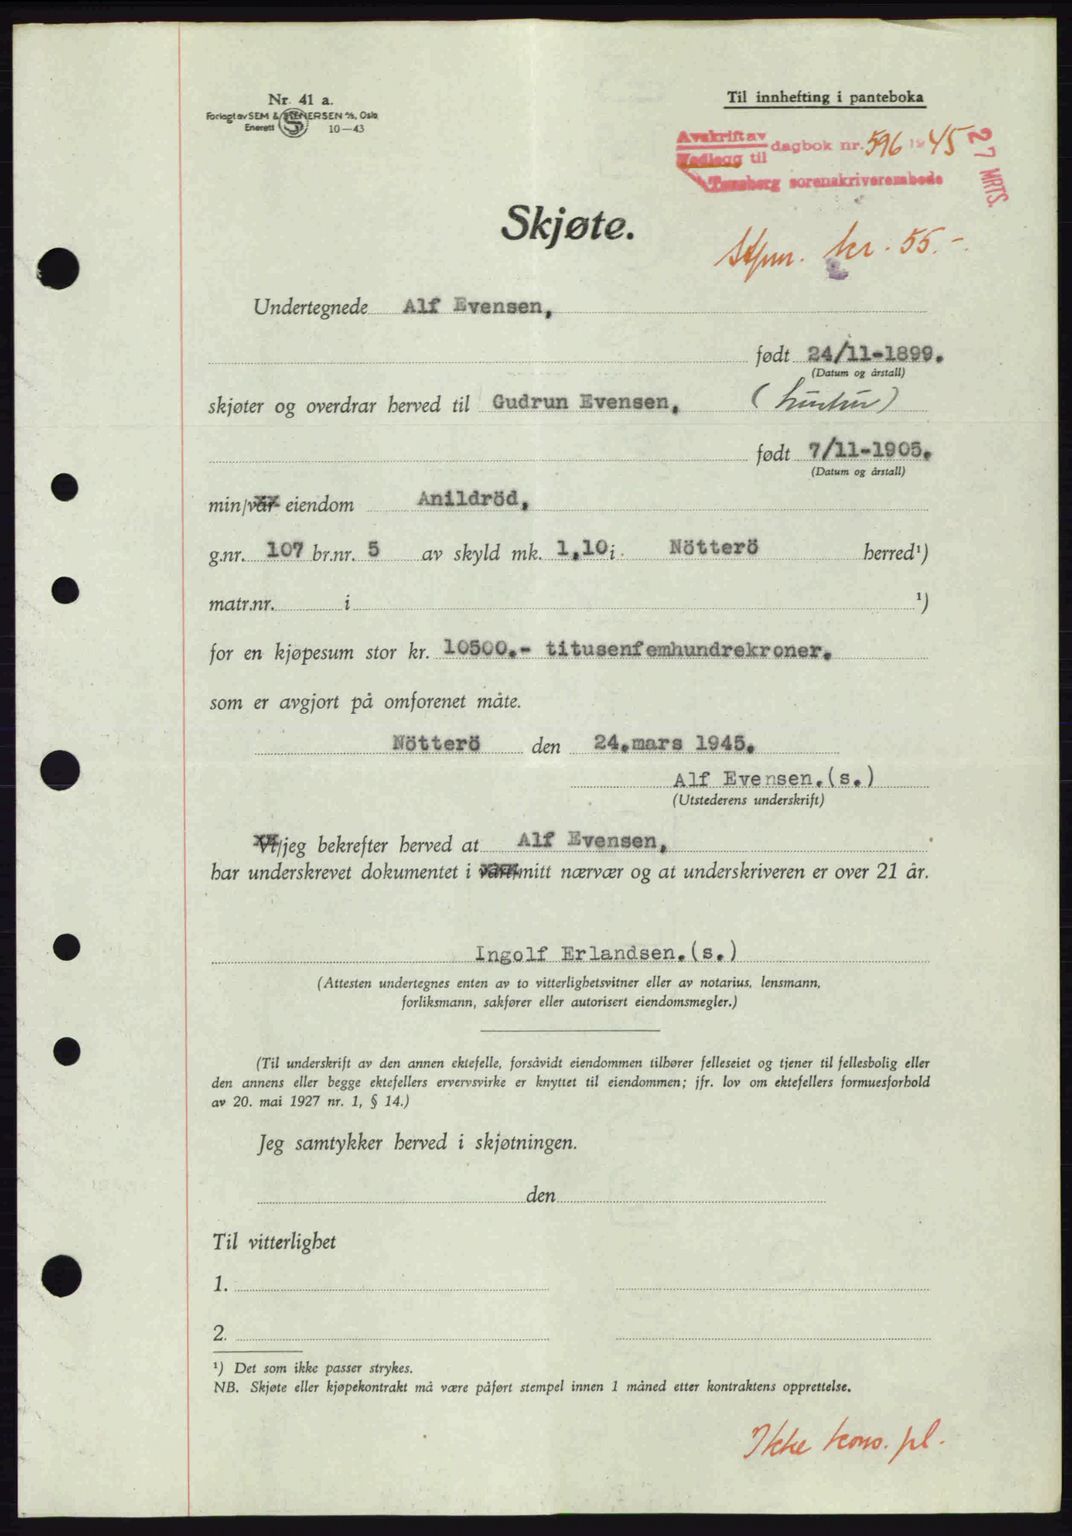 Nr. 41 a.
Forlagt av SEM & STENERSEN A/S, Oslo
Enerett S 10—43
Til innhefting i panteboka
Avskrift av
Vedlegg til dagbok nr. 596 1945
Tønsberg sorenskriverembede
27 MRTS.
Skjøte.
Stpm. kr. 55.-
Undertegnede Alf Evensen,
født 24/11-1899.
(Datum og årstall)
skjøter og overdrar herved til Gudrun Evensen, (hustru)
født 7/11-1905.
(Datum og årstall)
min/vår eiendom Anildröd,
g.nr. 107 br.nr. 5 av skyld mk. 1,10 i Nötterö herred¹)
matr.nr. i ¹)
for en kjøpesum stor kr. 10500.- titusenfemhundrekroner.
som er avgjort på omforenet måte.
Nötterö den 24.mars 1945.
Alf Evensen.(s.)
(Utstederens underskrift)
Vi/jeg bekrefter herved at Alf Evensen,
har underskrevet dokumentet i vårt/mitt nærvær og at underskriveren er over 21 år.
Ingolf Erlandsen.(s.)
(Attesten undertegnes enten av to vitterlighetsvitner eller av notarius, lensmann,
forliksmann, sakfører eller autorisert eiendomsmegler.)
(Til underskrift av den annen ektefelle, forsåvidt eiendommen tilhører felleseiet og tjener til fellesbolig eller
den annens eller begge ektefellers ervervsvirke er knyttet til eiendommen; jfr. lov om ektefellers formuesforhold
av 20. mai 1927 nr. 1, § 14.)
Jeg samtykker herved i skjøtningen.
den
Til vitterlighet
1.
2.
¹) Det som ikke passer strykes.
NB. Skjøte eller kjøpekontrakt må være påført stempel innen 1 måned etter kontraktens opprettelse.
Ikke kons. pl.